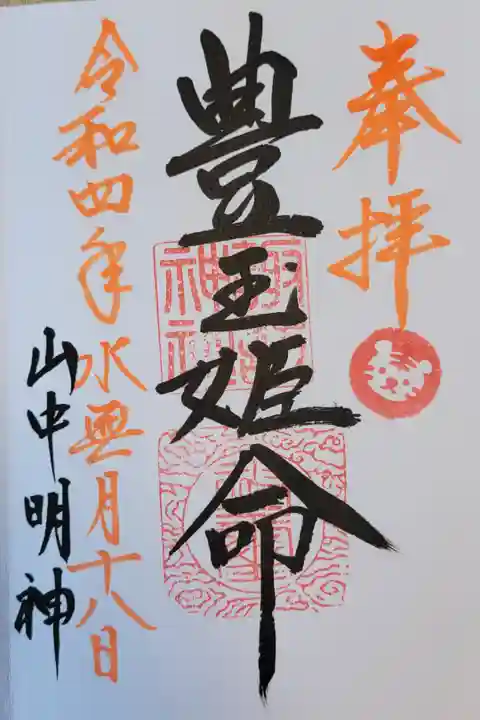 奉拝
豊玉姫命
令和四年水無月十八日
山中明神